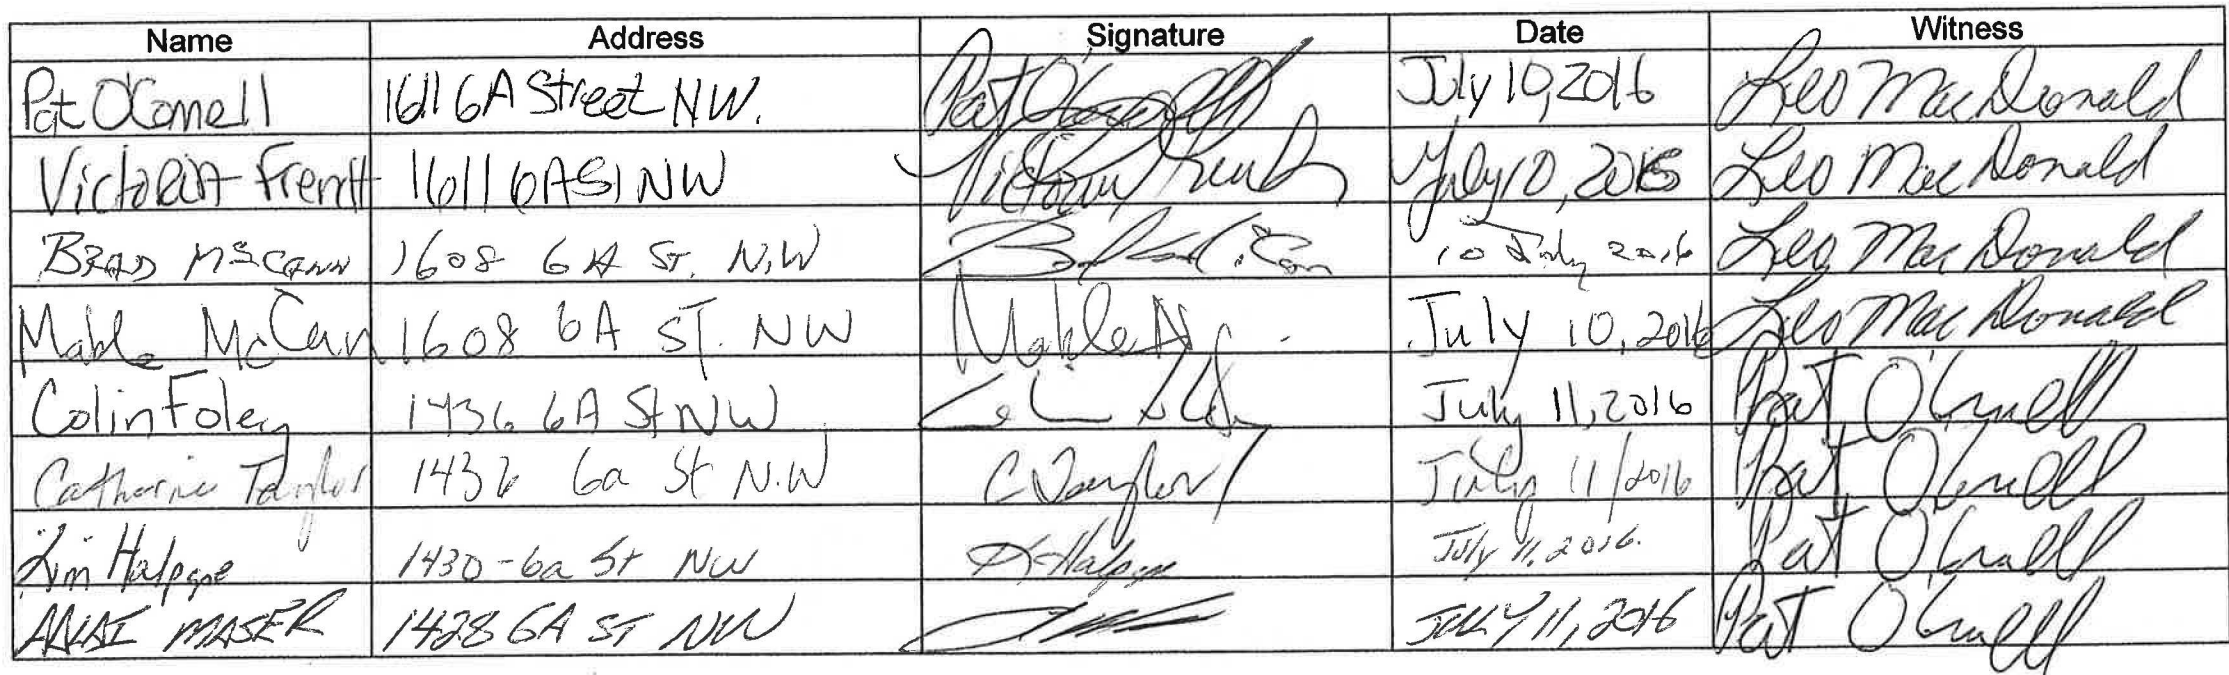 Name Address Signature Date Witness
Pat O'Connell 1611 6A Street NW. Pat O'Connell July 10, 2016 Leo MacDonald
Victoria 1611 6A St NW Victoria July 10, 2016 Leo MacDonald
BRAD McCANN 1608 6A ST. N.W 10 July 2016 Leo MacDonald
Mable McCann 1608 6A ST. NW Mable July 10, 2016 Leo MacDonald
Colin Foley 1436 6A St NW July 11, 2016 Pat O'Connell
Catharine Taylor 1436 6a St N.W C Taylor July 11/2016 Pat O'Connell
1430-6a St NW July 11, 2016. Pat O'Connell
MASER 1428 6A ST NW JULY 11, 2016 Pat O'Connell